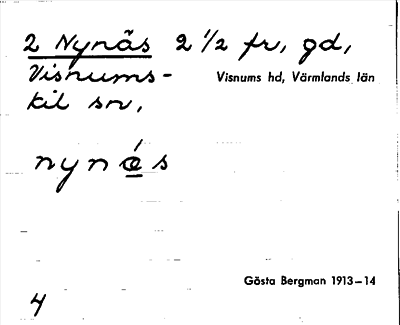 2 Nynäs 2 1/2 fr, gd,
Visnums-
kil sn,
Visnums hd, Värmlands län
nynǽ̱s
Gösta Bergman 1913–14
4